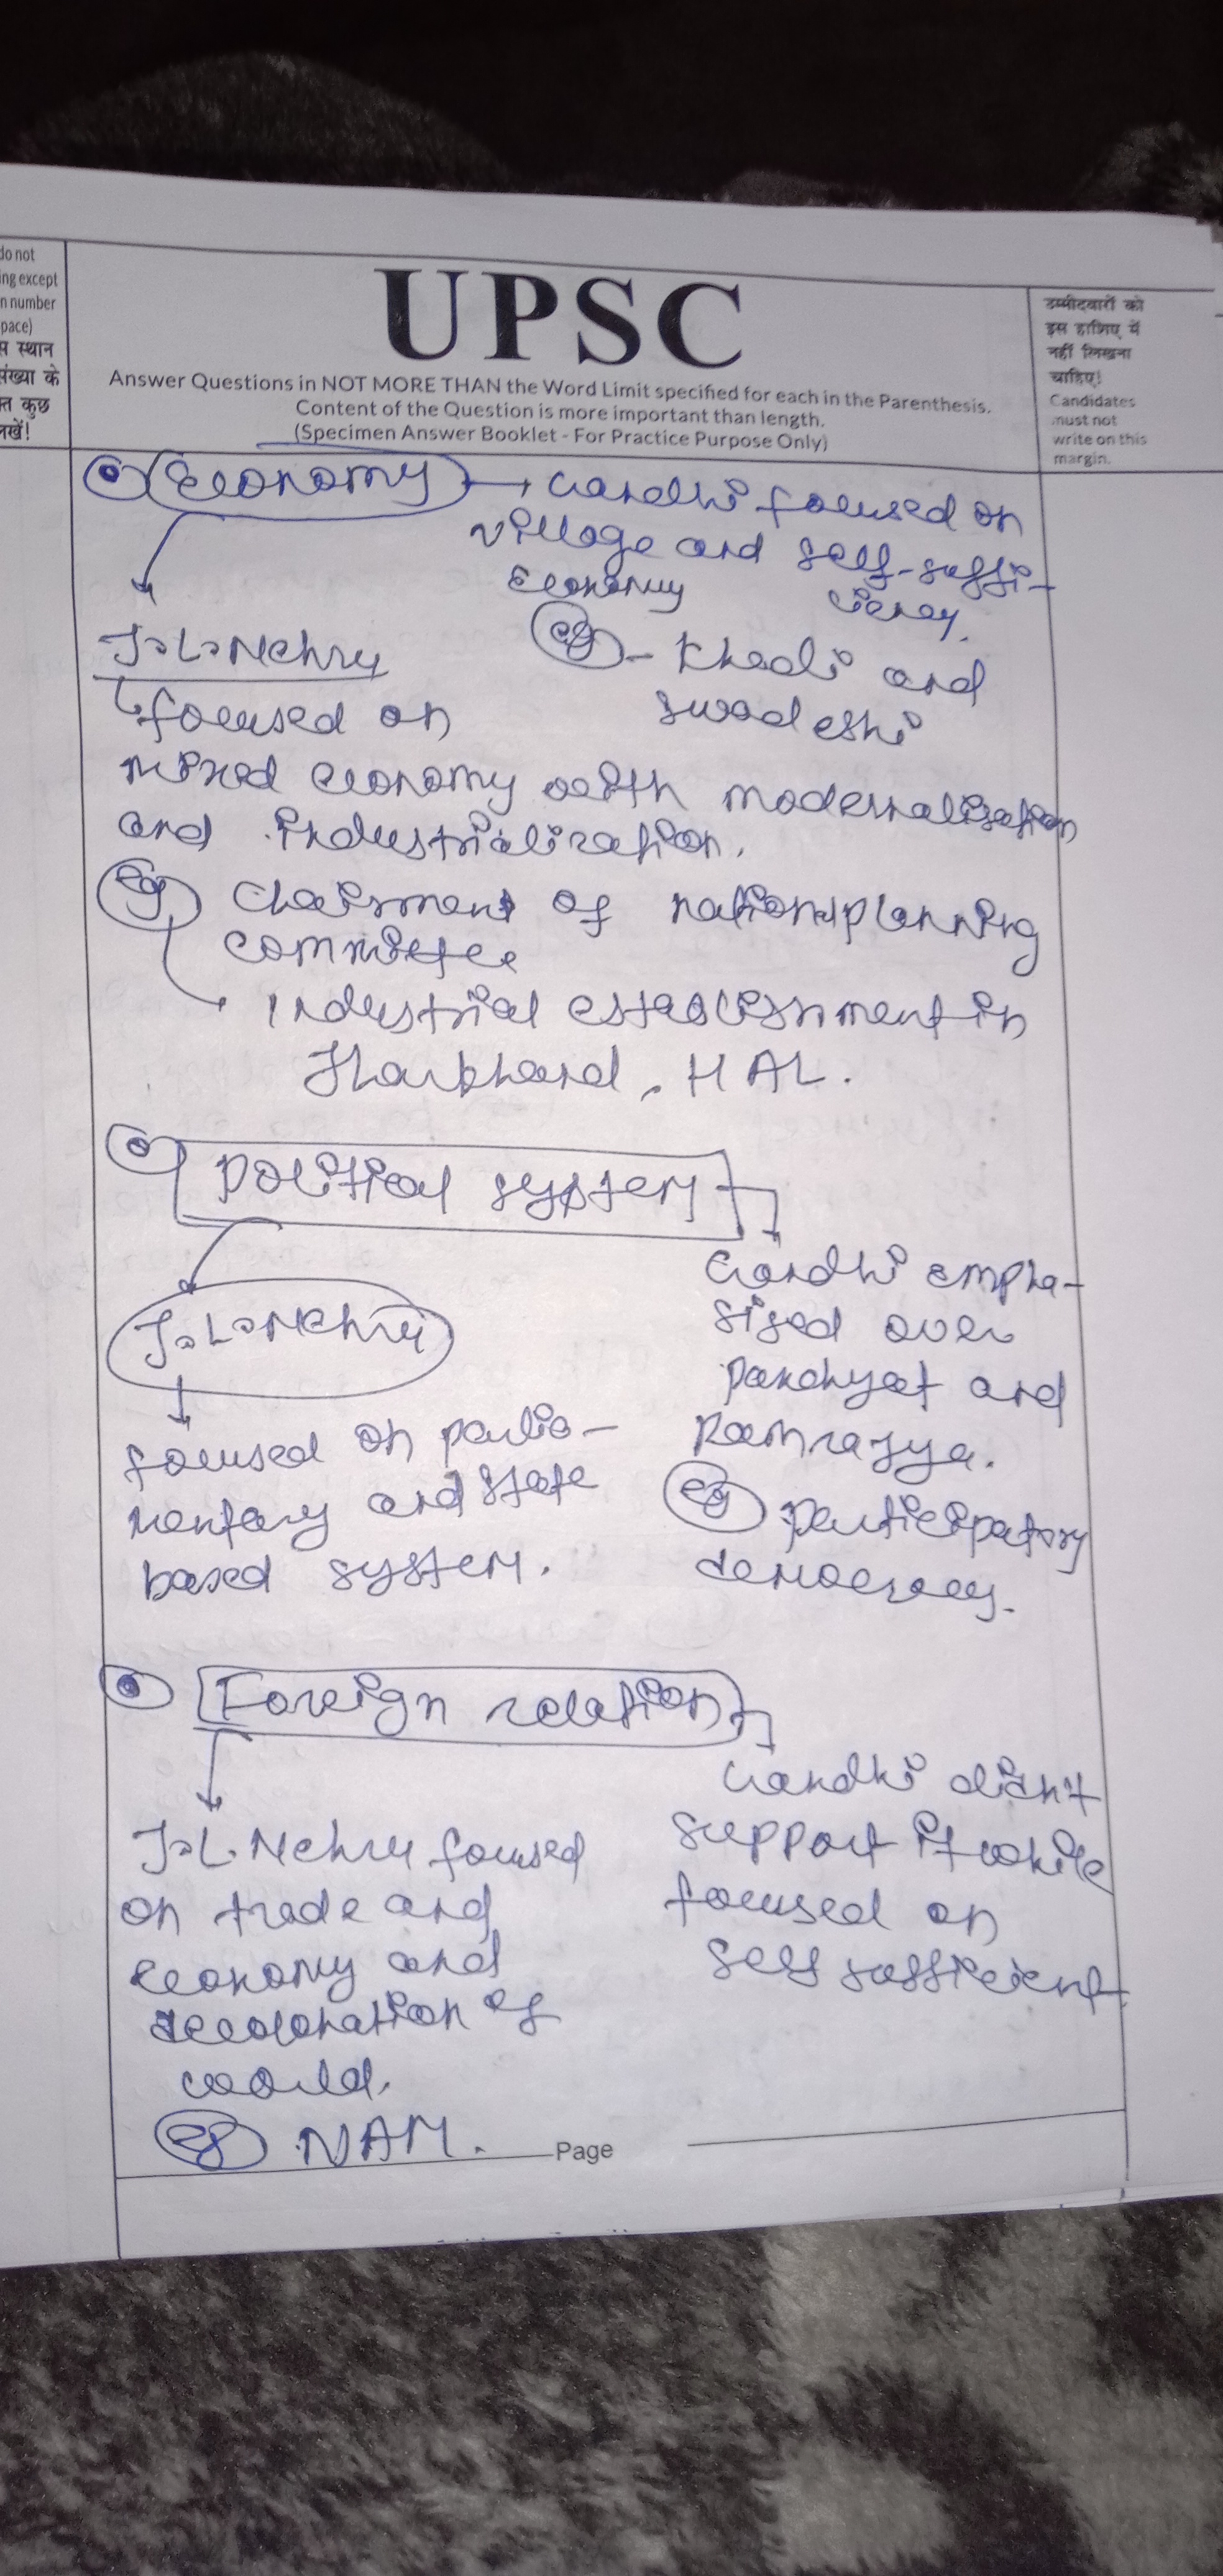 do not
ing except
n number
pace)
स स्थान
संख्या के
त कुछ
लखें!
UPSC
Answer Questions in NOT MORE THAN the Word Limit specified for each in the Parenthesis.
Content of the Question is more important than length.
(Specimen Answer Booklet - For Practice Purpose Only)
उम्मीदवारों को
इस हाशिए में
नहीं लिखना
चाहिए!
Candidates
must not
write on this
margin.
Economy → Gandhi focused on
village and self-suffi-
Economy ciency.
J.L.Nehru
eg - Khadi and
swadeshi
focused on
mixed economy with modernalization
and industrialization.
eg Chairment of nation planning
committee
Industrial establishment in
Jharkhand, HAL.
Political system
Gandhi empha-
sized over
panchyat and
Ramrajya.
eg participatory
democracy.
J.L.Nehru
focused on parlia-
mentary and state
based system.
Foreign relation
Gandhi didn't
support it while
focused on
self sufficient
J.L.Nehru focused
on trade and
economy and
decolonation of
world.
eg NAM.
Page